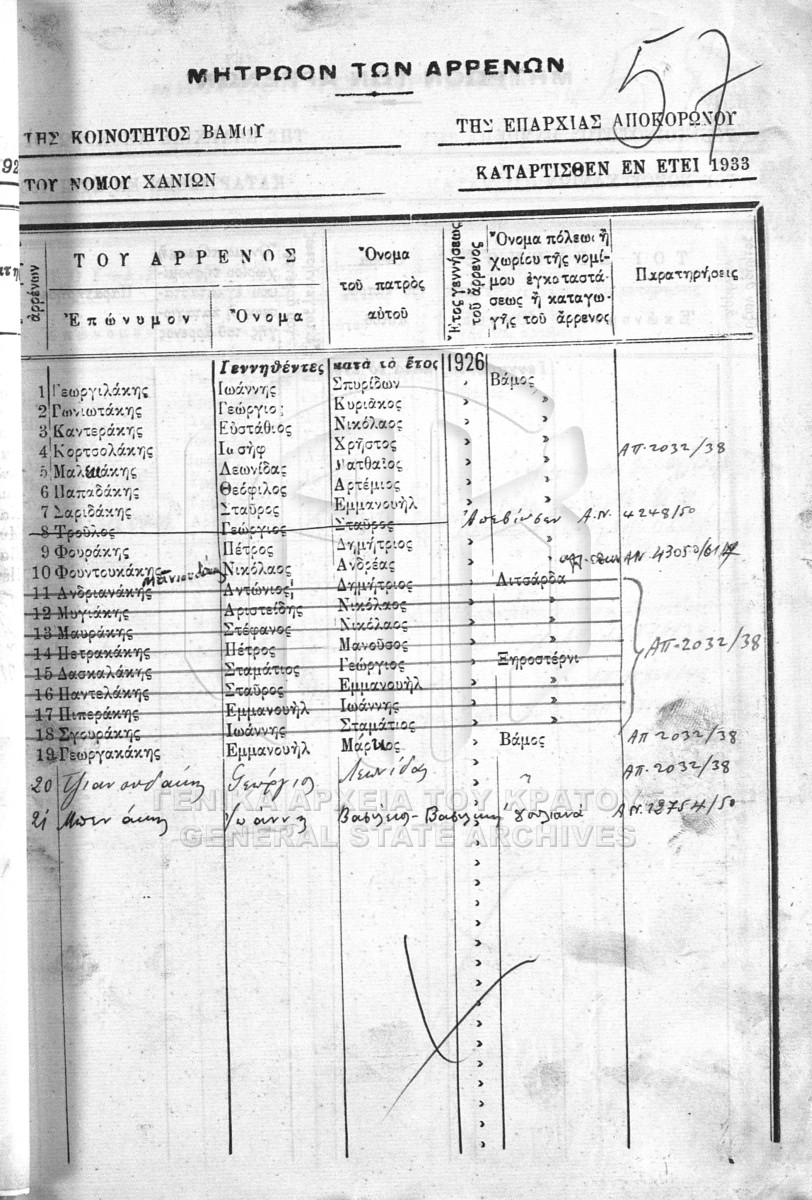 57
ΜΗΤΡΩΟΝ ΤΩΝ ΑΡΡΕΝΩΝ
ΤΗΣ ΚΟΙΝΟΤΗΤΟΣ ΒΑΜΟΥ ΤΗΣ ΕΠΑΡΧΙΑΣ ΑΠΟΚΟΡΩΝΟΥ
ΤΟΥ ΝΟΜΟΥ ΧΑΝΙΩΝ ΚΑΤΑΡΤΙΣΘΕΝ ΕΝ ΕΤΕΙ 1933
ἀρρένων
ΤΟΥ ΑΡΡΕΝΟΣ
Ἐπώνυμον Ὄνομα
Ὄνομα
τοῦ πατρὸς
αὐτοῦ
Ἔτος γεννήσεως
τοῦ ἄρρενος
Ὄνομα πόλεως ἢ
χωρίου τῆς νομί-
μου ἐγκαταστά-
σεως ἢ καταγω-
γῆς τοῦ ἄρρενος
Παρατηρήσεις
Γεννηθέντες κατὰ τὸ ἔτος 1926
1 Γεωργιλάκης Ἰωάννης Σπυρίδων » Βάμος
2 Γωνιωτάκης Γεώργιος Κυριᾶκος » »
3 Καντεράκης Εὐστάθιος Νικόλαος » »
4 Κορτσολάκης Ἰωσὴφ Χρῆστος » » ΑΠ. 2032/38
5 Μαλεμάκης Λεωνίδας Ματθαῖος » »
6 Παπαδάκης Θεόφιλος Ἀρτέμιος » »
7 Σαριδάκης Σταῦρος Ἐμμανουὴλ » »
8 Τροῦλος Γεώργιος Σταῦρος Ἀπεβίωσεν Α.Ν. 4248/50
9 Φουράκης Πέτρος Δημήτριος » »
10 Φουντουκάκης Νικόλαος Ἀνδρέας » » ΑΝ 43050/61
11 Ἀνδριανάκης Ἀντώνιος Δημήτριος » Λιτσάρδα
12 Μυγιάκης Ἀριστείδης Νικόλαος » »
13 Μαυράκης Στέφανος Νικόλαος » »
14 Πετρακάκης Πέτρος Μανοῦσος » » ΑΠ-2032/38
15 Δασκαλάκης Σταμάτιος Γεώργιος » Ξηροστέρνι
16 Παντελάκης Σταῦρος Ἐμμανουὴλ » »
17 Πιπεράκης Ἐμμανουὴλ Ἰωάννης » »
18 Σγουράκης Ἰωάννης Σταμάτιος » »
19 Γεωργακάκης Ἐμμανουὴλ Μάρκος » Βάμος ΑΠ 2032/38
20 Γεώργιος Λεωνίδας » » ΑΠ. 2032/38
ΓΕΝΙΚΑ ΑΡΧΕΙΑ ΤΟΥ ΚΡΑΤΟΥΣ
21 Ἰωάννης Βασίλειος - Βασιλική Α.Ν. 12754/50
GENERAL STATE ARCHIVES